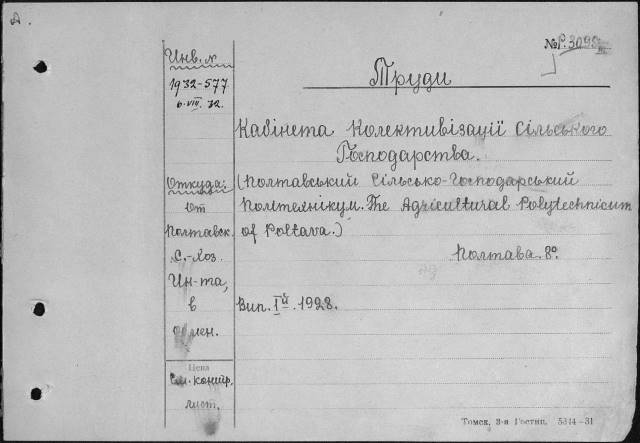 А.
№р. 3095
Труди
Инв. №
1932-577
6.VIII.32.
Кабінета Колективізації Сільського
Господарства.
Откуда:
От
Полтавск.
С.-Хоз.
Ин-та,
в
(Полтавський Сільсько-Господарський
Политехнікум. The Agricultural Polytechnicum
of Poltava.)
Полтава. 8°.
Вип. I й. 1928.
Цена
См. контр.
лист.
Томск, 3-я Гостип. 5344—31